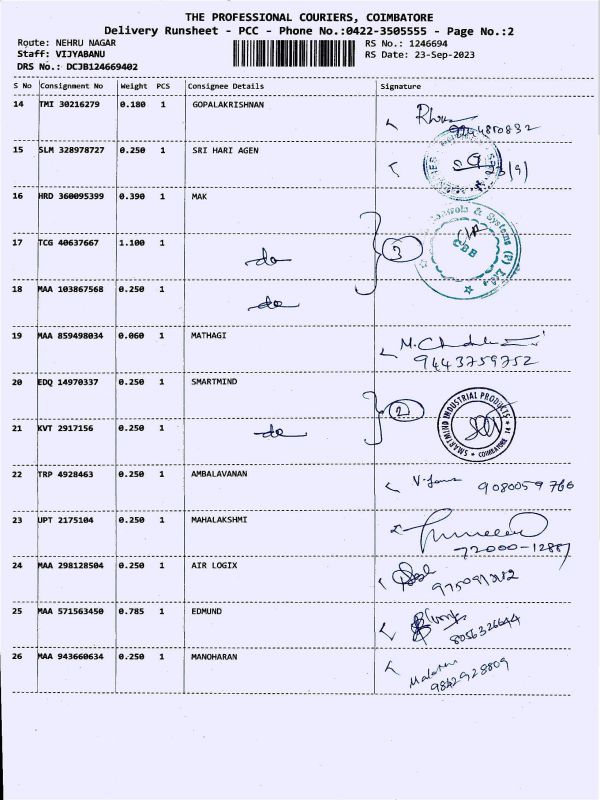 THE PROFESSIONAL COURIERS, COIMBATORE
Delivery Runsheet - PCC - Phone No.:0422-3505555 - Page No.:2
Route: NEHRU NAGAR RS No.: 1246694
Staff: VIJYABANU RS Date: 23-Sep-2023
DRS No.: DCJB124669402
S No Consignment No Weight PCS Consignee Details Signature
14 TMI 30216279 0.180 1 GOPALAKRISHNAN
15 SLM 328978727 0.250 1 SRI HARI AGEN
16 HRD 360095399 0.390 1 MAK
17 TCG 40637667 1.100 1 do 3
CBB
18 MAA 103867568 0.250 1 do
19 MAA 859498034 0.060 1 MATHAGI
9443759752
20 EDQ 14970337 0.250 1 SMARTMIND
2 SMARTMIND INDUSTRIAL PRODUCTS COIMBATORE 14
21 KVT 2917156 0.250 1 do
22 TRP 4928463 0.250 1 AMBALAVANAN 9080059766
23 UPT 2175104 0.250 1 MAHALAKSHMI
72000-12887
24 MAA 298128504 0.250 1 AIR LOGIX
25 MAA 571563450 0.785 1 EDMUND
8056326644
26 MAA 943660634 0.250 1 MANOHARAN
9842928809